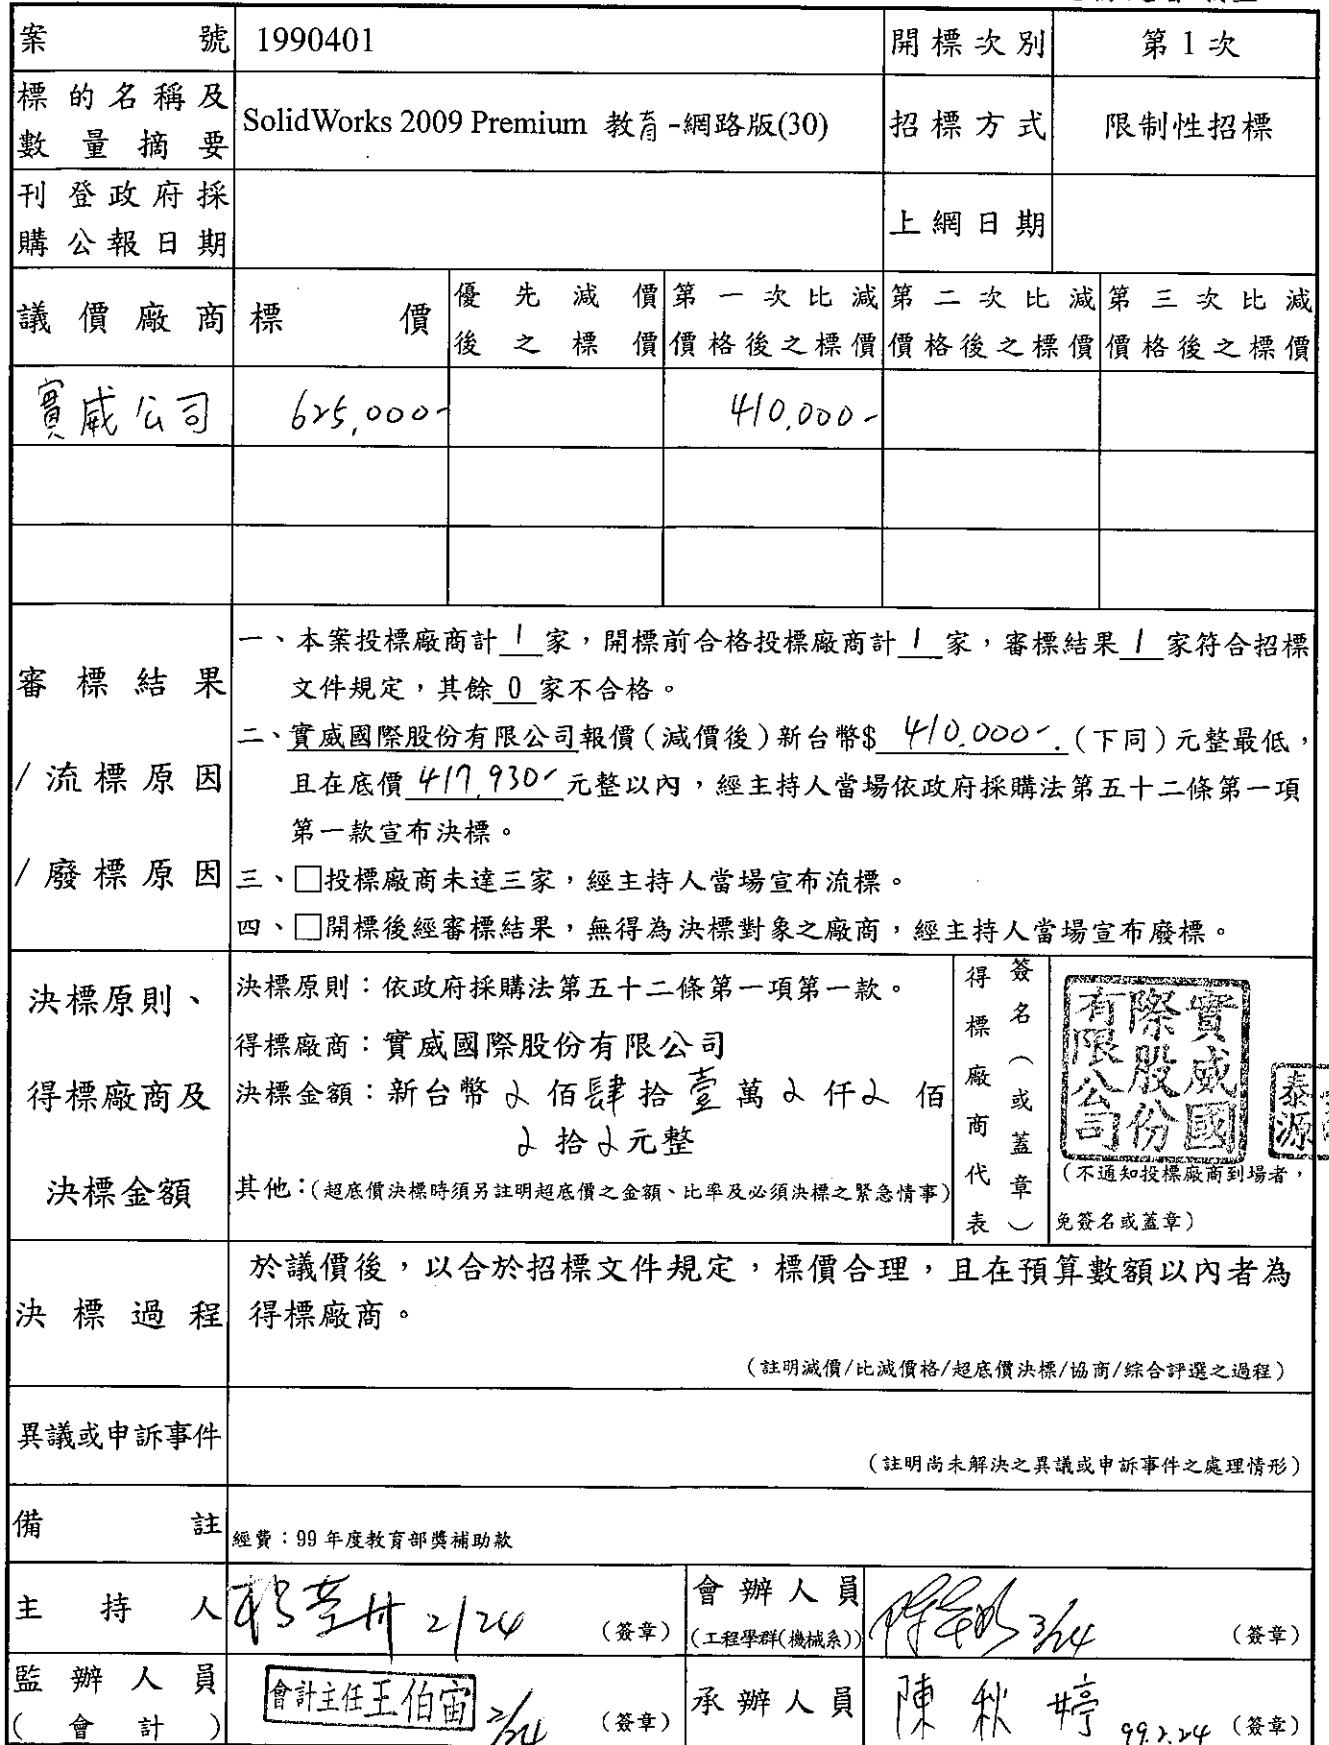 案號 1990401 開標次別 第1次
標的名稱及
數量摘要
SolidWorks 2009 Premium 教育-網路版(30) 招標方式 限制性招標
刊登政府採
購公報日期
上網日期
議價廠商 標價
優先減價
後之標價
第一次比減
價格後之標價
第二次比減
價格後之標價
第三次比減
價格後之標價
實威公司 625,000- 410,000-
審標結果
/流標原因
/廢標原因
一、本案投標廠商計1家,開標前合格投標廠商計1家,審標結果1家符合招標
文件規定,其餘0家不合格。
二、實威國際股份有限公司報價(減價後)新台幣$410,000-.(下同)元整最低,
且在底價417,930-元整以內,經主持人當場依政府採購法第五十二條第一項
第一款宣布決標。
三、□投標廠商未達三家,經主持人當場宣布流標。
四、□開標後經審標結果,無得為決標對象之廠商,經主持人當場宣布廢標。
決標原則、
得標廠商及
決標金額
決標原則:依政府採購法第五十二條第一項第一款。
得標廠商:實威國際股份有限公司
決標金額:新台幣 佰肆拾壹萬 仟 佰
拾 元整
其他:(超底價決標時須另註明超底價之金額、比率及必須決標之緊急情事)
得標廠商代表
簽名(或蓋章)
實威國際股份有限公司
泰源
(不通知投標廠商到場者,
免簽名或蓋章)
決標過程
於議價後,以合於招標文件規定,標價合理,且在預算數額以內者為
得標廠商。
(註明減價/比減價格/超底價決標/協商/綜合評選之過程)
異議或申訴事件
(註明尚未解決之異議或申訴事件之處理情形)
備註 經費:99年度教育部獎補助款
主持人 2/24 (簽章)
會辦人員
(工程學群(機械系))
2/24 (簽章)
監辦人員
(會計)
會計主任王伯宙 2/24 (簽章)
承辦人員 陳秋婷 99.2.24 (簽章)